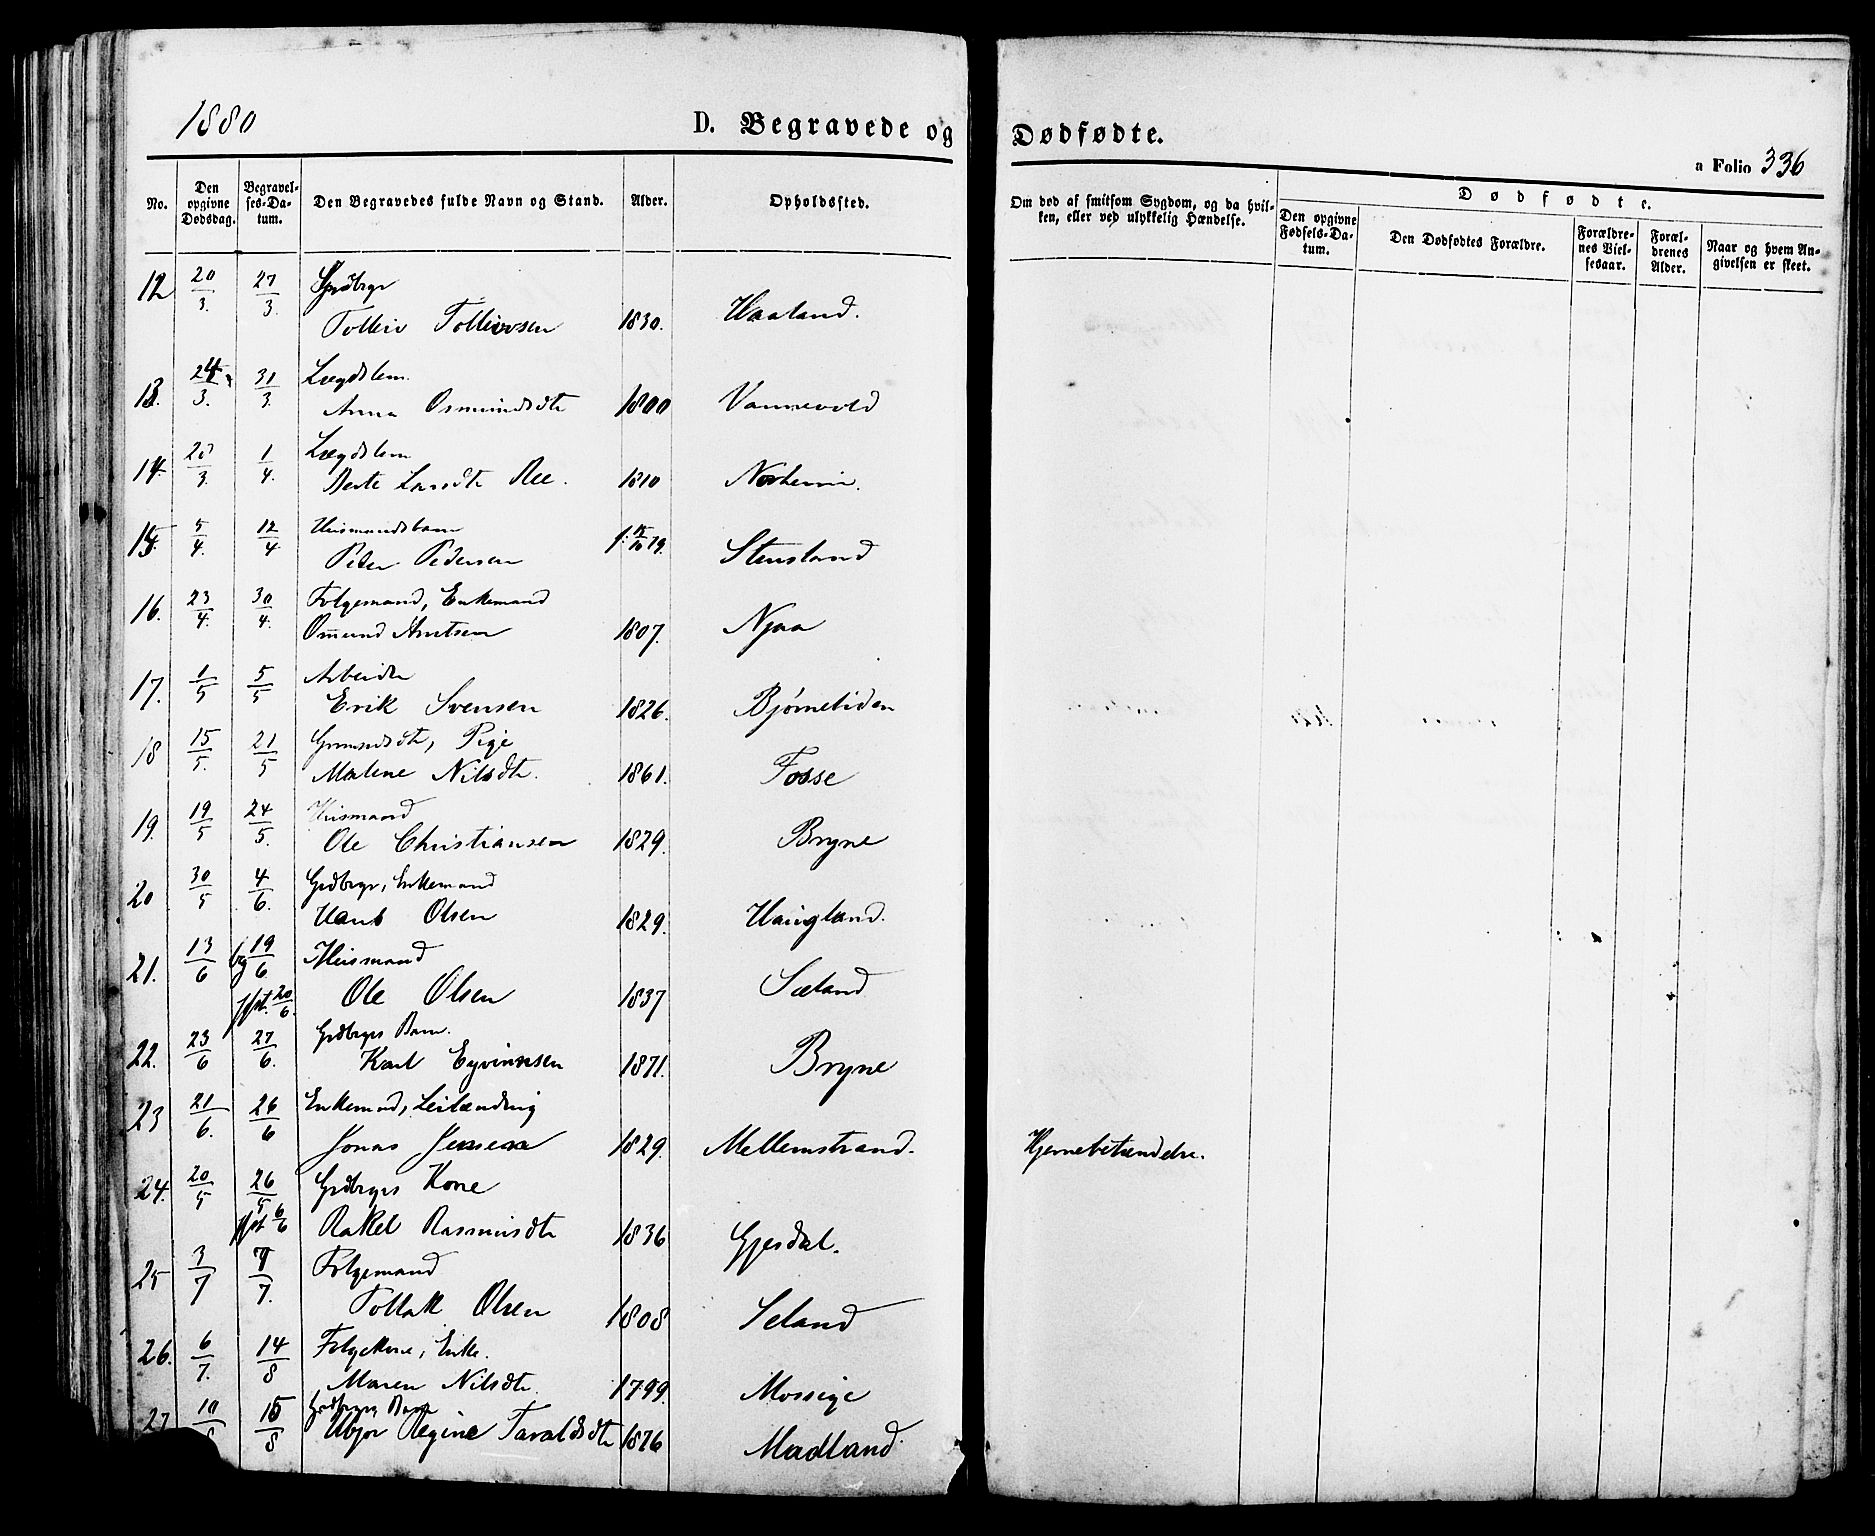 1880
D. Begravede og Dødfødte.
a Folio 336
No.
Den opgivne Dødsdag.
Begravelses-Datum.
Den Begravedes fulde Navn og Stand.
Alder.
Opholdssted.
Om død af smitsom Sygdom, og da hvilken, eller ved ulykkelig Hændelse.
Dødfødte.
Den opgivne Fødsels-Datum.
Den Dødfødtes Forældre.
Forældrenes Vielsesaar.
Forældrenes Alder.
Naar og hvem Angivelsen er skeet.
12 20/3. 27/3. Grdbrgr
Tolliv Tollivsen 1830. Haaland.
13. 24/3. 31/3. Lægdslem.
Anna Osmundsdtr 1800 Vannevold
14. 1/4. Lægdslem
Berte Larsdtr Ree. 1810 Norheim.
15. 5/4. 12/4 Huusmandsbarn
Peder Pedersen Stensland
16. 23/4. 30/4. Folgemand, Enkemand
Osmund Arntsen 1807. Njaa
17. 1/5 5/5 Arbeider
Erik Svensen 1826. Bjørneliden
18 15/5. 21/5 Pige
Malene Nilsdtr. 1861. Fosse
19. 19/5 24/5. Huusmand
Ole Christiansen 1829. Bryne
20 30/5 4/6. Grdbrgr, Enkemand
Hans Olsen 1829. Haugland.
21. 13/6 bg 19/6. Huusmand
jfst. 20/6. Ole Olsen 1837 Sæland
22. 23/6 27/6. Grdbrgrs Barn.
Karl Eyvinnsen 1871. Bryne
23 21/6. 26/6 Enkemnd, Leilænding
Jonas Jensen 1829. Mellemstrand. Hjernebetændelse.
24. 20/5 26/5 Grdbrgrs Kone
jfst 6/6 Rakel Rasmusdtr 1836 Gjesdal.
25 3/7 7/7. Folgemand
Tollak Olsen 1808 Seland
26. 6/7. 14/8 Folgekone, Enke.
Maren Nilsdtr. 1799. Mossige
27 10/8 15/8 Grdbrgrs Barn
Regine Taraldsdtr 1876 Madland